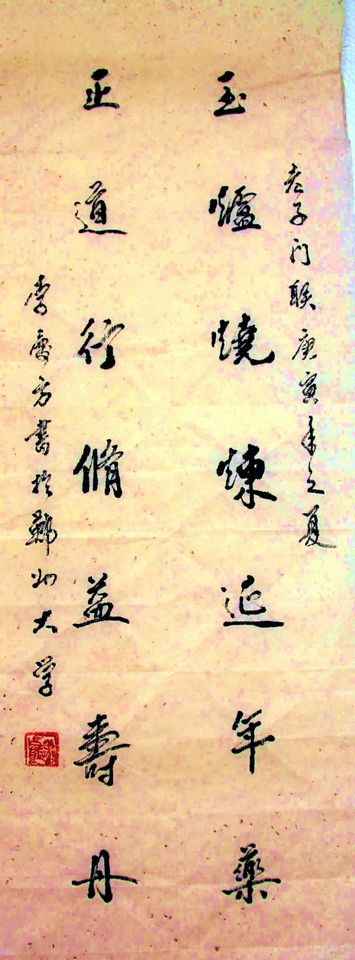 老子门联庚寅年之夏
玉爐燒煉延年藥
正道行脩益壽丹
李方書於州大学